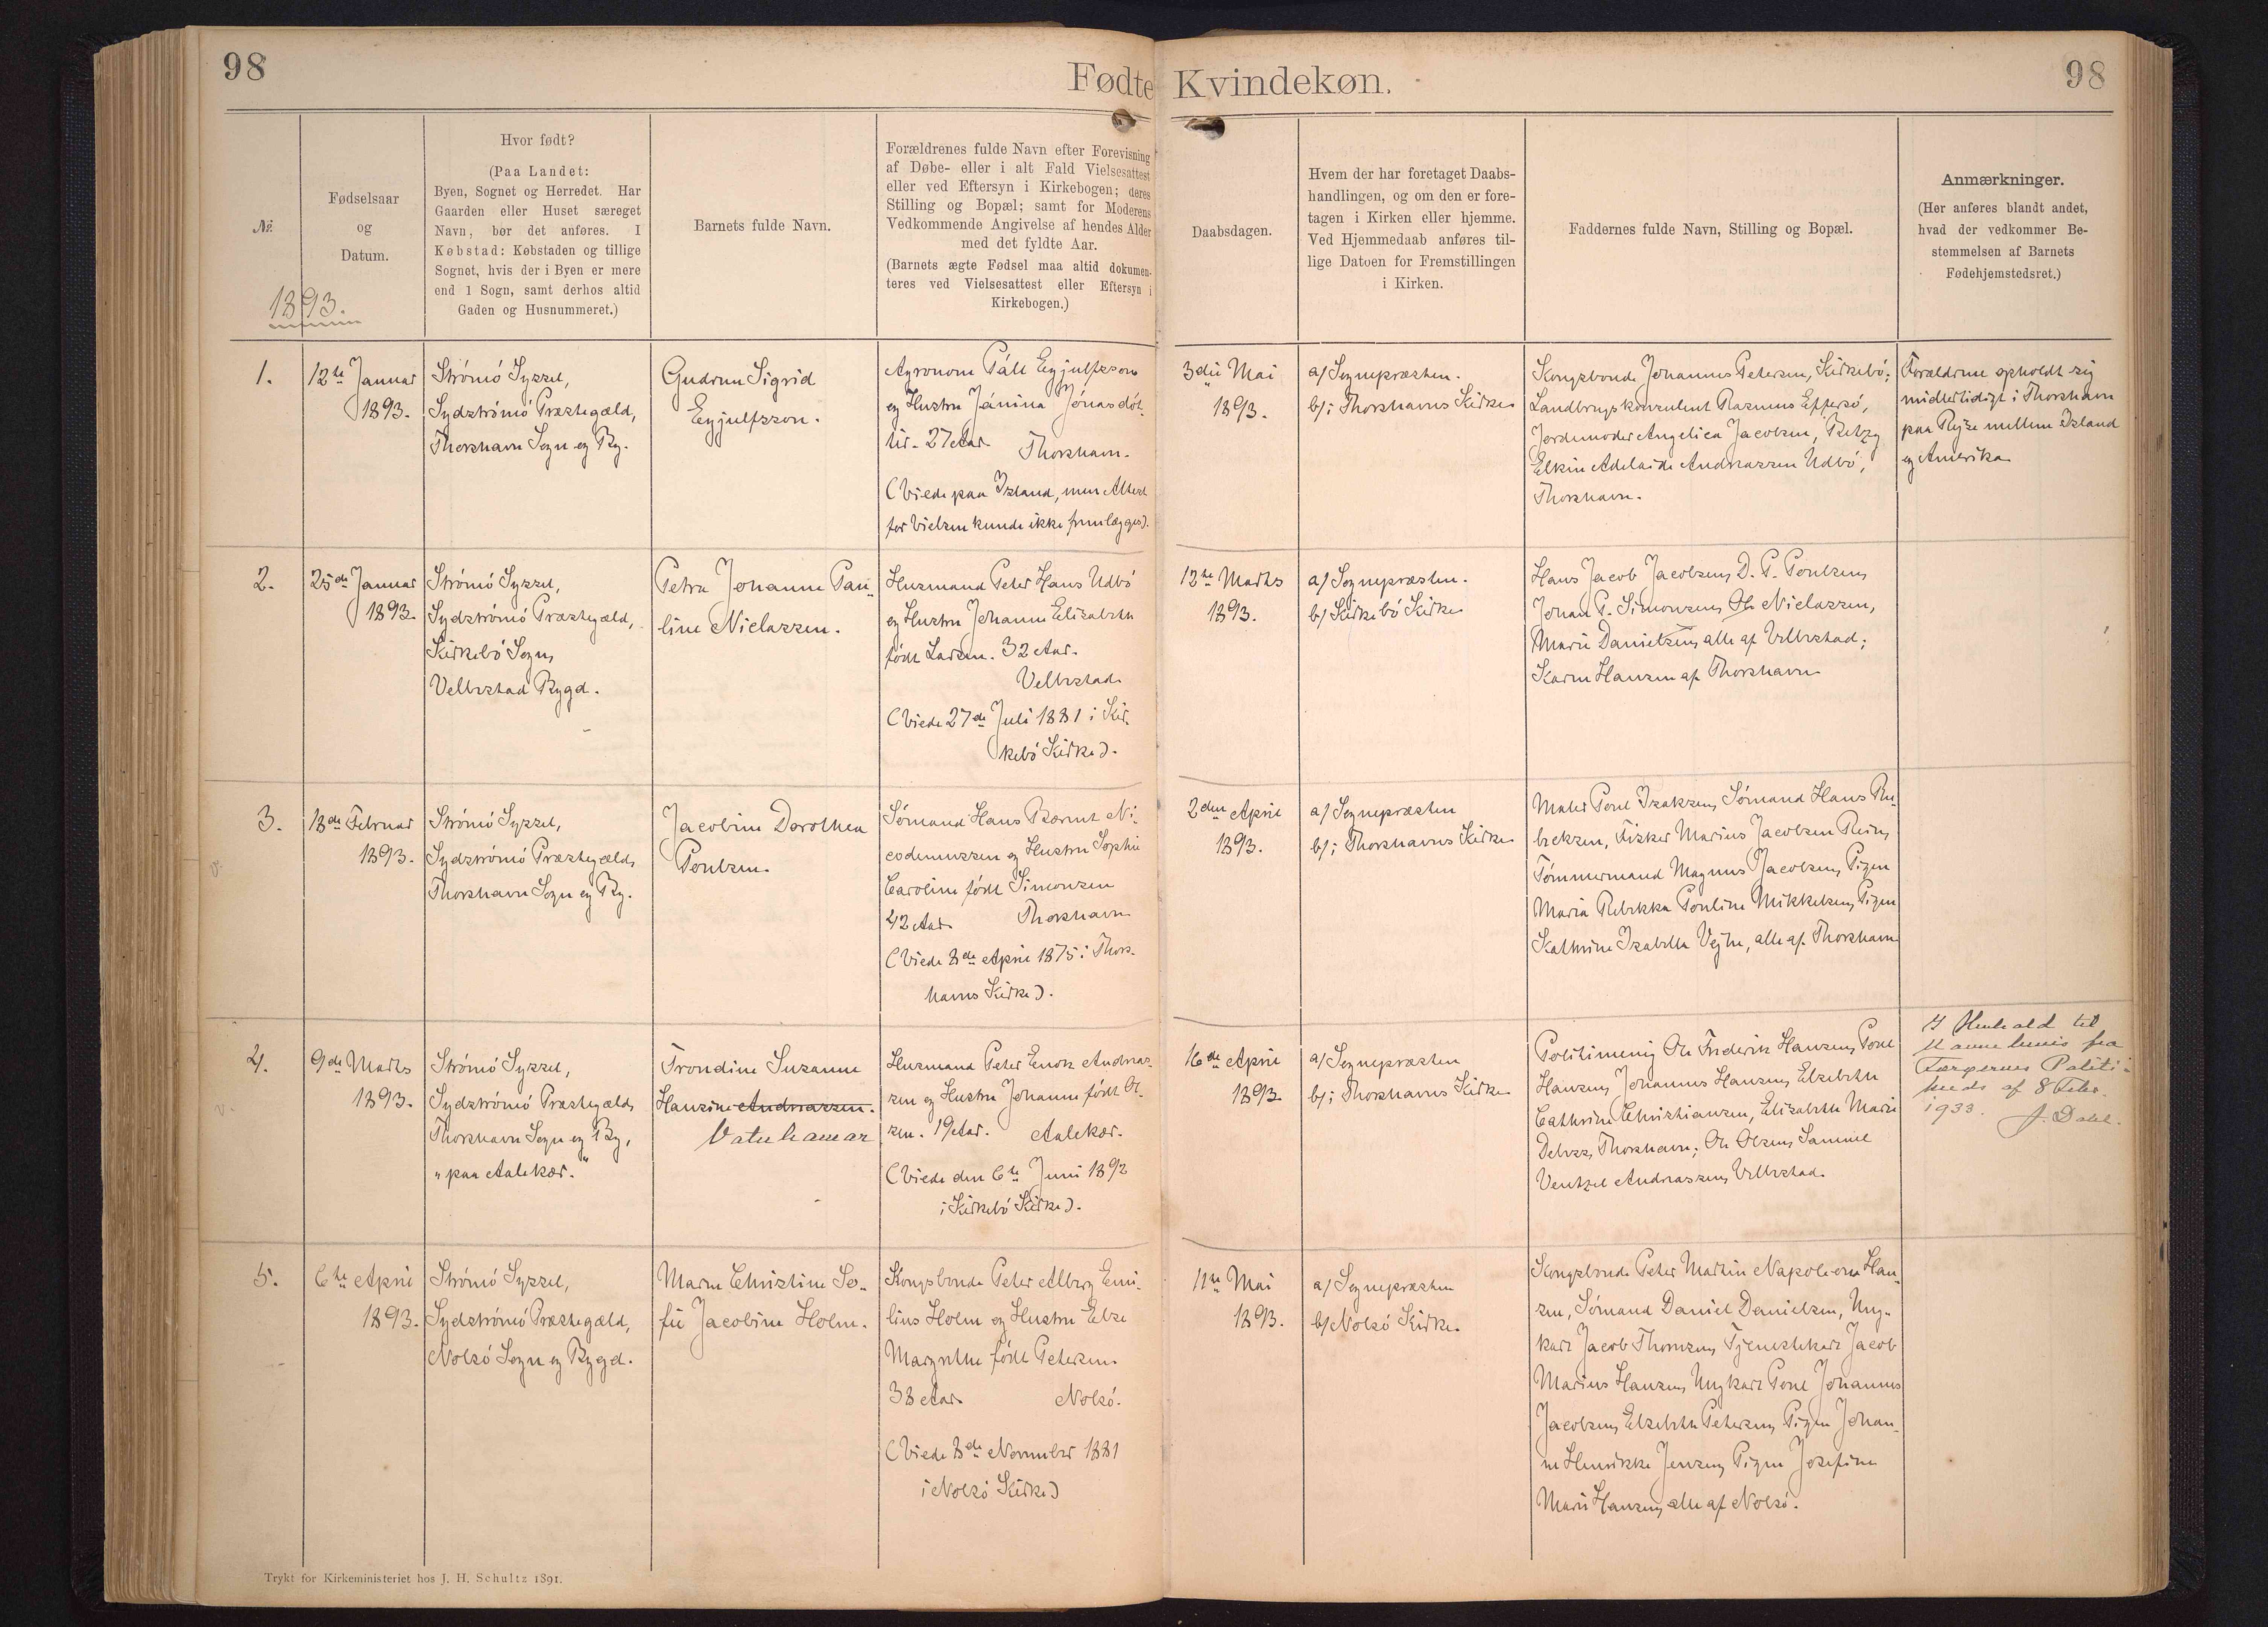 98
Fødte Kvindekøn.
98
№
Fødselsaar
og
Datum.
1893.
Hvor født?
(Paa Landet:
Byen, Sognet og Herredet. Har
Gaarden eller Huset særeget
Navn, bør det anføres. I
Købstad: Købstaden og tillige
Sognet, hvis der i Byen er mere
end 1 Sogn, samt derhos altid
Gaden og Husnummeret.)
Barnets fulde Navn.
Forældrenes fulde Navn efter Forevisning
af Døbe- eller i alt Fald Vielsesattest
eller ved Eftersyn i Kirkebogen; deres
Stilling og Bopæl; samt for Moderens
Vedkommende Angivelse af hendes Alder
med det fyldte Aar.
(Barnets ægte Fødsel maa altid dokumen-
teres ved Vielsesattest eller Eftersyn i
Kirkebogen.)
Daabsdagen.
Hvem der har foretaget Daabs-
handlingen, og om den er fore-
tagen i Kirken eller hjemme.
Ved Hjemmedaab anføres til-
lige Datoen for Fremstillingen
i Kirken.
Faddernes fulde Navn, Stilling og Bopæl.
Anmærkninger.
(Her anføres blandt andet,
hvad der vedkommer Be-
stemmelsen af Barnets
Fødehjemstedsret.)
1.
12te Januar
1893.
Strömö Syssel,
Sydströmö Præstegæld,
Thorshavn Sogn og By.
Gudrun Sigrid
Eyjulfsson.
Agronom Páll Eyjulfsson
og Hustru Jánina Jónasdót-
tir. 27 Aar.
Thorshavn.
(Viede paa Island, men Attest
for Vielsen kunde ikke fremlægges).
3die Mai
1893.
a/ Sognepræsten.
b/ i Thorshavns Kirke
Kongsbonde Johannes Petersen, Kirkebö;
Landbrugskonsulent Rasmus Effersö,
Jordemoder Angelica Jacobsen,
Elkin Adelaide Andreassen Udbö,
Thorshavn.
Forældrene opholdt sig
midlertidigt i Thorshavn
paa Rejse mellem Island
og Amerika
2.
25de Januar
1893.
Strömö Syssel,
Sydströmö Præstegæld,
Kirkebö Sogn,
Velbestad Bygd.
Petra Johanne Pau-
line Niclassen.
Husmand Peter Hans Udbö
og Hustru Johanne Elisabeth
født Larsen. 32 Aar.
Velbestad
(Viede 27de Juli 1881 i Kir-
kebö Kirke).
12te Marts
1893.
a/ Sognepræsten.
b/ Kirkebö Kirke
Hans Jacob Jacobsen, D. P. Poulsen,
Johan P. Simonsen, Ole Niclassen,
Marie Danielsen, alle af Velbestad;
Karen Hansen af Thorshavn
3.
18de Februar
1893.
Strömö Syssel,
Sydströmö Præstegæld,
Thorshavn Sogn og By.
Jacobine Dorothea
Poulsen.
Sömand Hans Bærent Ni-
codemussen og Hustru Sophie
Caroline født Simonsen
42 Aar
Thorshavn
(Viede 8de April 1875 i Thors-
havns Kirke).
2den April
1893.
a/ Sognepræsten
b/ i Thorshavns Kirke
Maler Poul Isaksen, Sömand Hans Re-
beksen, Fisker Marius Jacobsen Rein,
Tömmermand Magnus Jacobsen, Pigen
Maria Rebekka Pouline Mikkelsen, Pigen
Kathrine Isabella Vejhe, alle af Thorshavn
4.
9de Marts
1893.
Strömö Syssel,
Sydströmö Præstegæld,
Thorshavn Sogn og By,
"paa Aalekær."
Trondine Susanne
Hansine Andreassen.
Vatnhamar
Husmand Peter Enok Andreas-
sen og Hustru Johanne født Ol-
sen. 19 Aar.
Aalekær.
(Viede den 6te Juni 1892
i Kirkebö Kirke).
16de April
1893
a/ Sognepræsten
b/ i Thorshavns Kirke
Politimenig Ole Frederik Hansen, Poul
Hansen, Johannes Hansen, Elsebeth
Cathrine Christiansen, Elisabeth Marie
Debess, Thorshavn; Ole Olsen, Samuel
Ventzel Andreassen, Velbestad.
I Henhold til
Færøernes Politi-
meds af 8 Febr.
1933. J. Dahl.
5.
6te April
1893.
Strömö Syssel,
Sydströmö Præstegæld,
Nolsö Sogn og Bygd.
Maren Christine So-
fie Jacobine Holm.
Kongsbonde Peter Alberg Emi-
lius Holm og Hustru Else
Margrethe født Petersen.
38 Aar
Nolsö.
(Viede 8de November 1881
i Nolsö Kirke)
11te Mai
1893.
a/ Sognepræsten
b/ Nolsö Kirke.
Kongsbonde Peter Martin Napoleon Han-
sen, Sömand Daniel Danielsen, Ung-
karl Jacob Thomsen, Tjenestekarl Jacob
Marius Hansen, Ungkarl Poul Johannes
Jacobsen, Elsebeth Petersen, Pigen Johan-
ne Henrikke Jensen, Pigen Josefine
Marie Hansen, alle af Nolsö.
Trykt for Kirkeministeriet hos J. H. Schultz 1891.